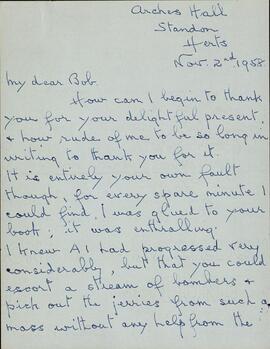 Arches Hall
Standon
Herts
Nov. 2nd 1958
My dear Bob.
How can I begin to thank
you for your delightful present,
& how rude of me to be so long in
writing to thank you for it.
It is entirely your own fault
though, for every spare minute I
could find, I was glued to your
book; it was enthralling.
I knew A I had progressed very
considerably, but that you could
escort a stream of bombers &
pick out the jerries from such a
mass without any help from the